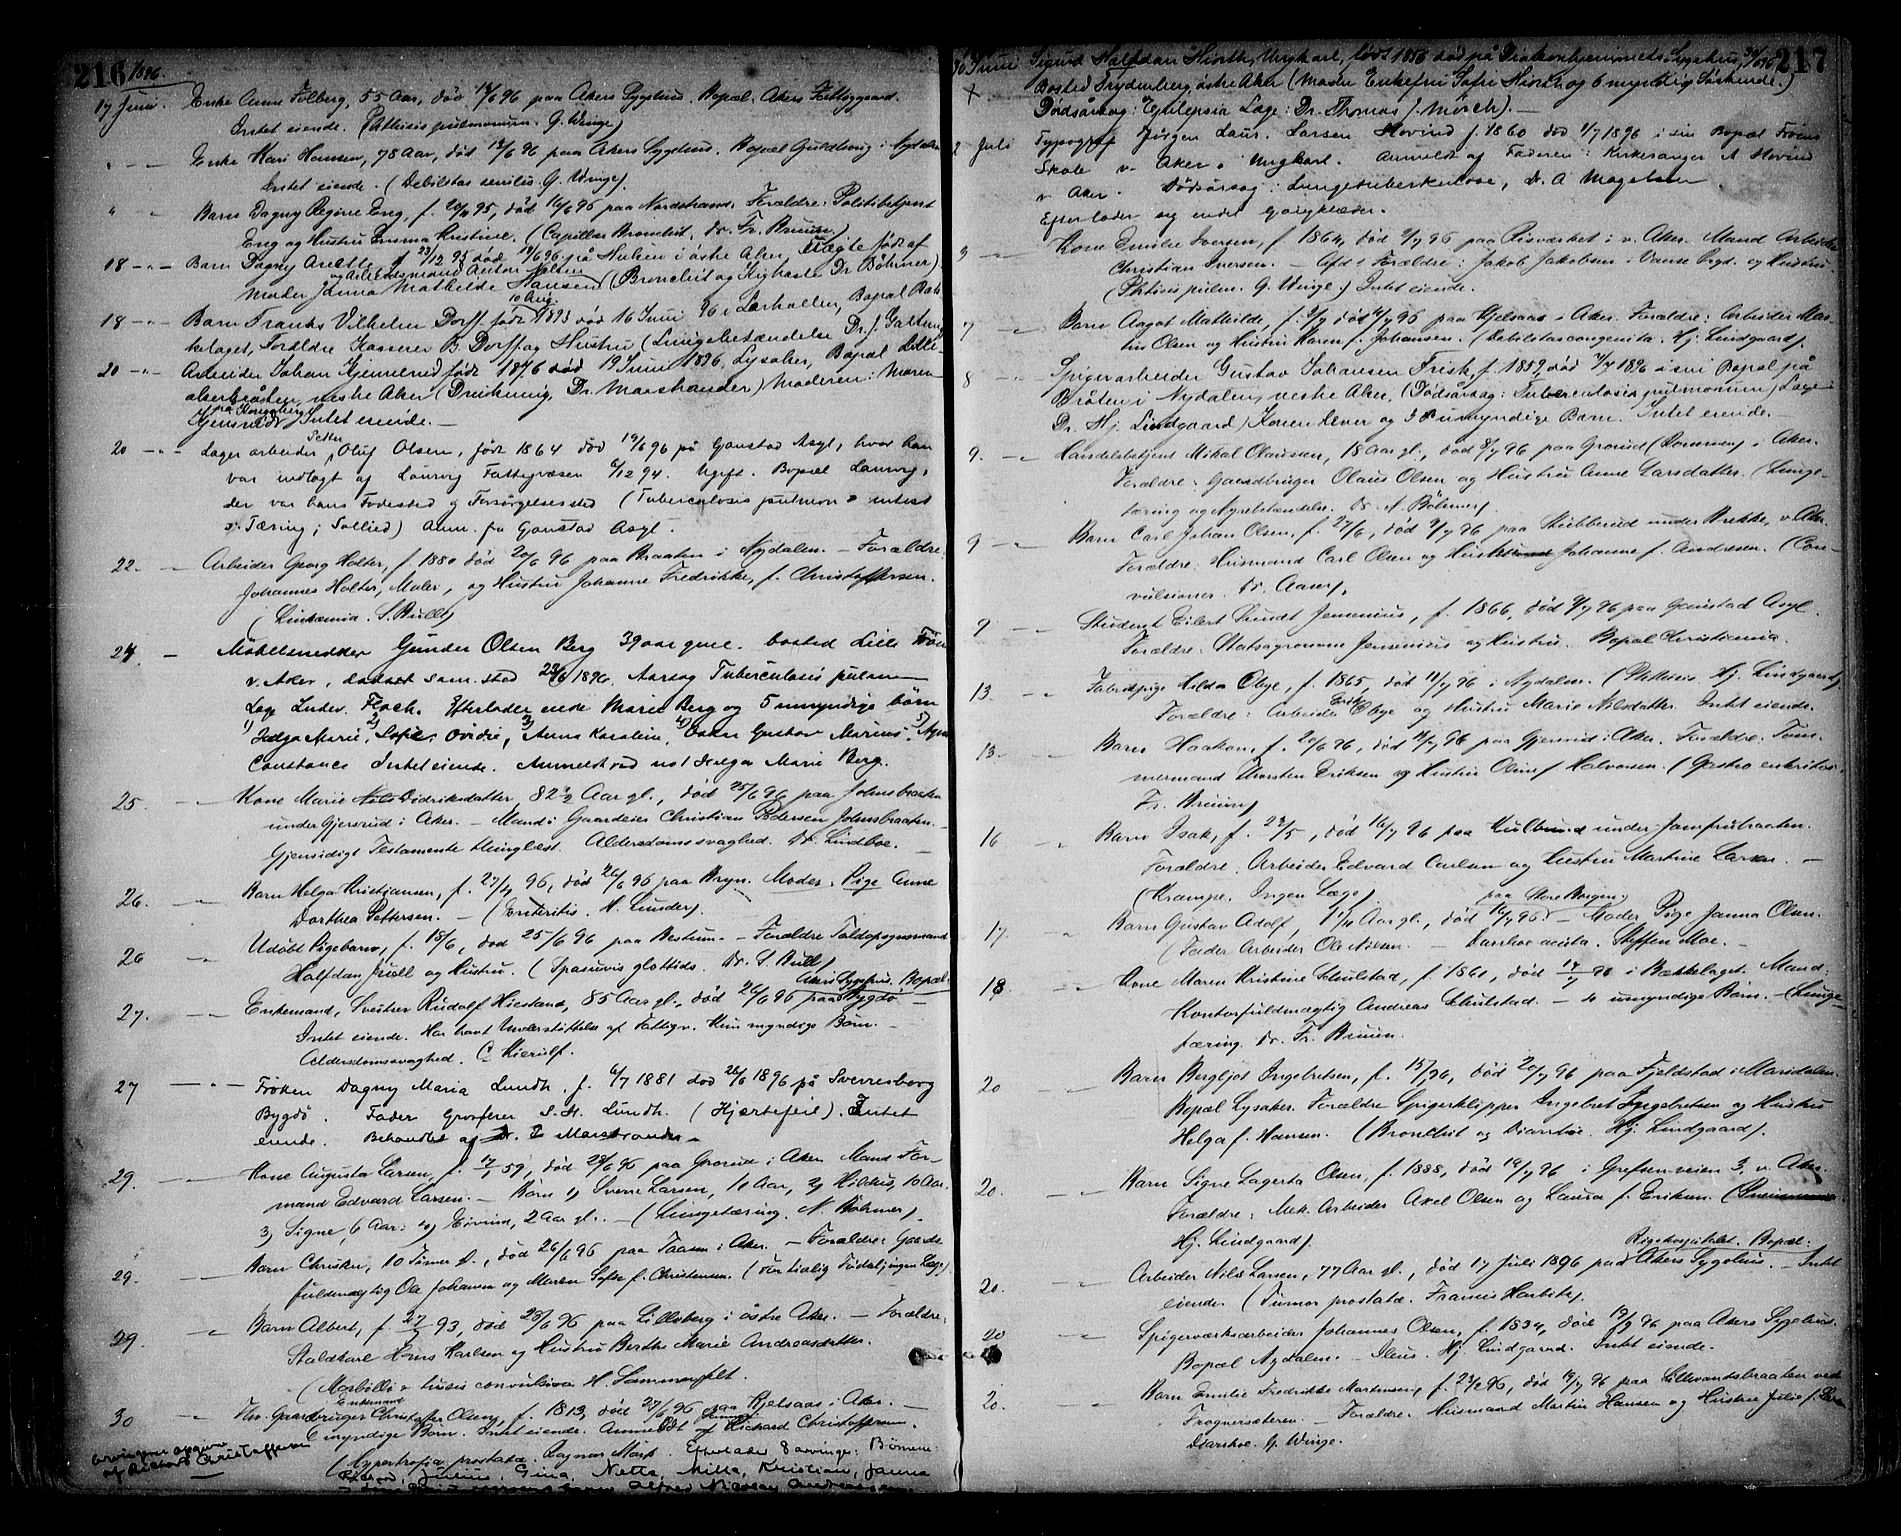 216 1896.
17 Juni. Enke Anne Folberg, 55 Aar, død 13/6 96 paa Akers Sygehus. Bopæl Akers Fattiggaard.
Intet eiende. (Pthisis pulmonum. G. Winge)
" - Enke Kari Hansen, 78 Aar, død 13/6 96 paa Akers Sygehus. Bopæl Guldberg i Nydalen
Intet eiende. (Debilitas senilis. G. Winge).
" - Barn Dagny Regine Eng, f. 95, død 16/6 96 paa Nordstrand. Forældre: Politibetjent
Eng og Hustru Emma Kristine. (Capillær Bronchit. Dr. Fr. Bruun)
18 -"- Barn Dagny Anette f 22/12 95 død 96 på Hulsen i østre Aker, uægte født af
og Arb. Anton Jolsen
Moder Janna Mathilde Hansen (Bronchit og Kighoste Dr Böhmer)
10 Aug.
18 -"- Barn Frants Vilhelm Dorff født 1893 død 16 Juni 96 i Bopæl Bæk-
kelaget, Forældre Kasserer B. Dorff og Hustru (Lungebetændelse Dr. J. Galtung
20 -"- Arbeider Johan Gjemsrud født 1876 død 19 Juni 1896, Lysaker, Bopæl Lille-
akerbråten, vestre Aker (Drukning, Dr. Marstrander) Moderen: Maren
Gjemsrud på Kongsberg Intet eiende. —
20 -"- Lager arbeider Petter Oluf Olsen, født 1864 død 19/6 96 på Gaustad Asyl, hvor han
var indlagt af Laurvig Fattigvæsen 6/12 94. Ugift. Bopæl Laurvig,
der var hans Fødested og Forsørgelsessted (Tuberculosis pulmon & intest
Tæring; Sollied) Anm. fra Gaustad Asyl.
22. - Arbeider Georg Holter, f. 1880 død 20/6 96 paa Braaten i Nydalen. — Forældre
Johannes Holter, Maler, og Hustru Johanne Fredrikke, f. Christoffersen.
(Leukæmia. S. Bull)
24. - Møbelsnedker Gunder Olsen Berg 39 aar gml. bosted Lille Frøen
v. Aker, dødsst sam. sted 22/6 1896. Aarsag Tuberculosis pulmon
Læge Ludv. Floch. Efterlader enke Marie Berg og 5 umyndige børn
1) Helga Marie, 2) Sofie Ovidie, 3) Anna Karoline, 4) Oskar Gustav Marius, 5) Agnes
Constance Intet eiende. Anmeldt ved no 1 Helga Marie Berg.
25. - Kone Marie Didriksdatter, 82 1/2 Aar gl., død 25/6 96 paa Johnsbraaten
under Gjersrud i Aker. — Mand: Gaardeier Christian Pedersen Johnsbraaten. —
Gjensidigt Testamente thinglæst. Alderdomssvaghed. Dr. Lindboe. —
26. - Barn Helga Kristiansen, f. 27/4 96, død 24/6 96 paa Bryn. Moder: Pige Anne
Dorthea Pettersen. — (Enteritis. H. Lunder).
26 " Udøbt Pigebarn, f. 18/6, død 25/6 96 paa Bestum. — Forældre Toldopsynsmand
Halfdan Juell og Hustru. (Spasmis glottidis. Dr. S. Bull)
Akers Sygehus. Bopæl
27. - Enkemand, Rudolf Hiestand, 85 Aar gl., død 26/6 96 paa Bygdø —
Intet eiende. Har havt Understøttelse af Fattigv. Kun myndige Børn. —
Alderdomssvaghed. C Kierulf.
27 -"- Frøken Dagny Maria Lundh. f. 6/7 1881 død 26/6 1896 på Sverresborg
Bygdø. Fader Grosserer S. H. Lundh. (Hjertefeil). Intet
eiende. Behandlet af Dr. Marstrander
29. - Kone Augusta Larsen, f. 59, død 96 paa Grorud i Aker. Mand For-
mand Edvard Larsen. — Børn 1) Sverre Larsen, 11 Aar, 2) Hildus, 10 Aar.
3) Signe, 6 Aar; 4) Eivind, 2 Aar gl. — (Lungetæring. N. Böhmer).
29. - Barn Christen, 10 Timer gl., død 26/6 96 paa Taasen i Aker. — Forældre: Gaards-
fuldmægtig Ole Johansen og Maren Sofie f. Christensen. (For tidlig Fødsel, ingen Læge)
29. " Barn Albert, f. 93, død 23/6 96 paa Lilleberg i østre Aker. — Forældre:
Staldkarl Hans Karlsen og Hustru Berthe Marie Andreasdatter.
(Morbilli & tussis convulsiva H. Sommerfelt.
Enkemand
30 - Fhv. Gaardbruger Christoffer Olsen, f. 1813, død 27/6 96 paa Kjelsaas i Aker. —
myndige Børn. Intet eiende. Anmeldt af Rickard Christoffersen.
(Hypertrofia prostatæ. Ragnar Mørk. Efterlader 8 arvinger: Børnene:
Arvingerne opgivne
af Rickard Christoffersen
Julius, Gina, Netta, Milla, Kristian, Janna
Nicolay Andreassen

217
30 Juni Sigurd Halfdan Hiorth, Ungkarl, født 1856 død på Diakonhjemmets Sygehus, 30/6 96
Bosted Frydenberg østre Aker (Moder Enkefru Sofie Hiorth og 6 myndige Søskende.)
Dødsårsag: Epilepsia Læge: Dr. Thomas J. Mörch). —
2 Juli Typograf Jørgen Laur. Larsen Hovind f. 1860 død 1/7 1896 i sin Bopæl Frøens
Skole v. Aker. Ungkarl. Anmeldt af Faderen: Kirkesanger A Hovind
v. Aker. Dødsårsag: Lungetuberkulose, Dr. A Magelsen
Efterlader sig endel gangklæder.
3 - Kone Emilie Iversen, f. 1864, død 2/7 96 paa Risværket i v. Aker. Mand Arbeider
Christian Iversen. — Afd. Forældre: Jakob Jakobsen i Vanse Sogd. og Hustru
(Phtisis pulm. G. Winge.) Intet eiende.
7 - Barn Aagot Mathilde, f. død 96 paa Kjelsaas i Aker. Forældre: Arbeider Mar-
tin Olsen og Hustru Karen f. Johansen. (Debilitas congenita. Hj. Lindgaard).
8 " Spigerarbeider Gustav Johansen Frisk f. 1859, død 1896 i sin Bopæl på
Bråten i Nydalen, vestre Aker, (Dødsårsag: Tuberculosis pulmonum, Læge:
Dr. Hj. Lindgaard) Konen lever og 3 umyndige Barn. Intet eiende. —
9. - Handelsbetjent Mikal Olaussen, 18 Aar gl., død 8/7 96 paa Grorud i Aker.
Forældre: Gaardbruger Olaus Olsen og Hustru Anne Larsdatter. (Lunge-
tæring og Nyrebetændelse. Dr. N. Böhmer).
9 - Barn Carl Johan Olsen, f. 27/6, død 9/7 96 paa Stubberud under Brekke, v. Aker.
Forældre: Husmand Carl Olsen og Hustru Johanne f. Andresen. (Con-
vulsioner. Dr. Aaser).
9 - Student Eilert Sundt Jensenius, f. 1866, død 9/7 96 paa Gaustad Asyl.
Forældre: Statsagronom Jensenius og Hustru. Bopæl Christiania.
13. - Fabrikpige Hilda Obye, f. 1865, død 11/7 96 i Nydalen. (Phthisis. Hj. Lindgaard)
Forældre: Arbeider Erik Obye og Hustru Marie Nilsdatter. Intet eiende.
13. - Barn Haakon, f. 20/6 96, død 96 paa Gjersrud i Aker. Forældre: Tøm-
mermand Thorsten Eriksen og Hustru Oline f. Halvorsen. (Gastro enteritis.
Fr. Bruun)
16 " Barn Isak, f. 23/5, død 16/7 96 paa Hulbund under Jomfrubraaten.
Forældre: Arbeider Edvard Carlsen og Hustru Martine Larsen. —
(Krampe. Ingen Læge)
paa Store Bergen.
17. " Barn Gustav Adolf, 1 Aar gl., død 16/7 96. — Moder Pige Janna Olsen.
(Fader Arbeider Ole Nielsen. — Diarrhoe acuta. Steffen Moe. —
18. - Kone Maren Kristine Schulstad, f. 1861, død 17/7 96 i Bækkelaget. Mand:
Kontorfuldmægtig Andreas Schulstad. — 4 umyndige Børn. — (Lunge-
tæring. Dr. Fr. Bruun.
20 - Barn Bergljot Ingebretsen, f. 15/1 96, død 20/7 96 paa Fjeldstad i Maridalen.
Bopæl Lysaker. Forældre Spigerklipper Ingebret Ingebretsen og Hustru
Helga f. Hansen. (Bronchit og Diarrhoe. Hj. Lindgaard).
20. - Barn Signe Lagerta Olsen, f. 1888, død 19/7 96 i Grefsenveien 3, v. Aker.
Forældre: Mek. Arbeider Axel Olsen og Laura f. Eriksen.
Hj. Lindgaard).
Rigshospitalet. Bopæl:
20. - Arbeider Nils Larsen, 77 Aar gl., død 17 Juli 1896 paa Akers Sygehus. — Intet
eiende. (Tumor prostatæ. Francis Harbitz).
20 - Spigerværksarbeider Johannes Olsen, f. 1834, død 19/7 96 paa Akers Sygehus.
Bopæl Nydalen. — Ileus. Hj. Lindgaard. Intet eiende.
20. " Barn Emilie Fredrikke Martinsen, f. 96, død 96 paa Lillevandsbraaten ved
Frognersæteren. — Forældre: Husmand Martin Hansen og Hustru Julie f.
Diarrhoe. G. Winge.